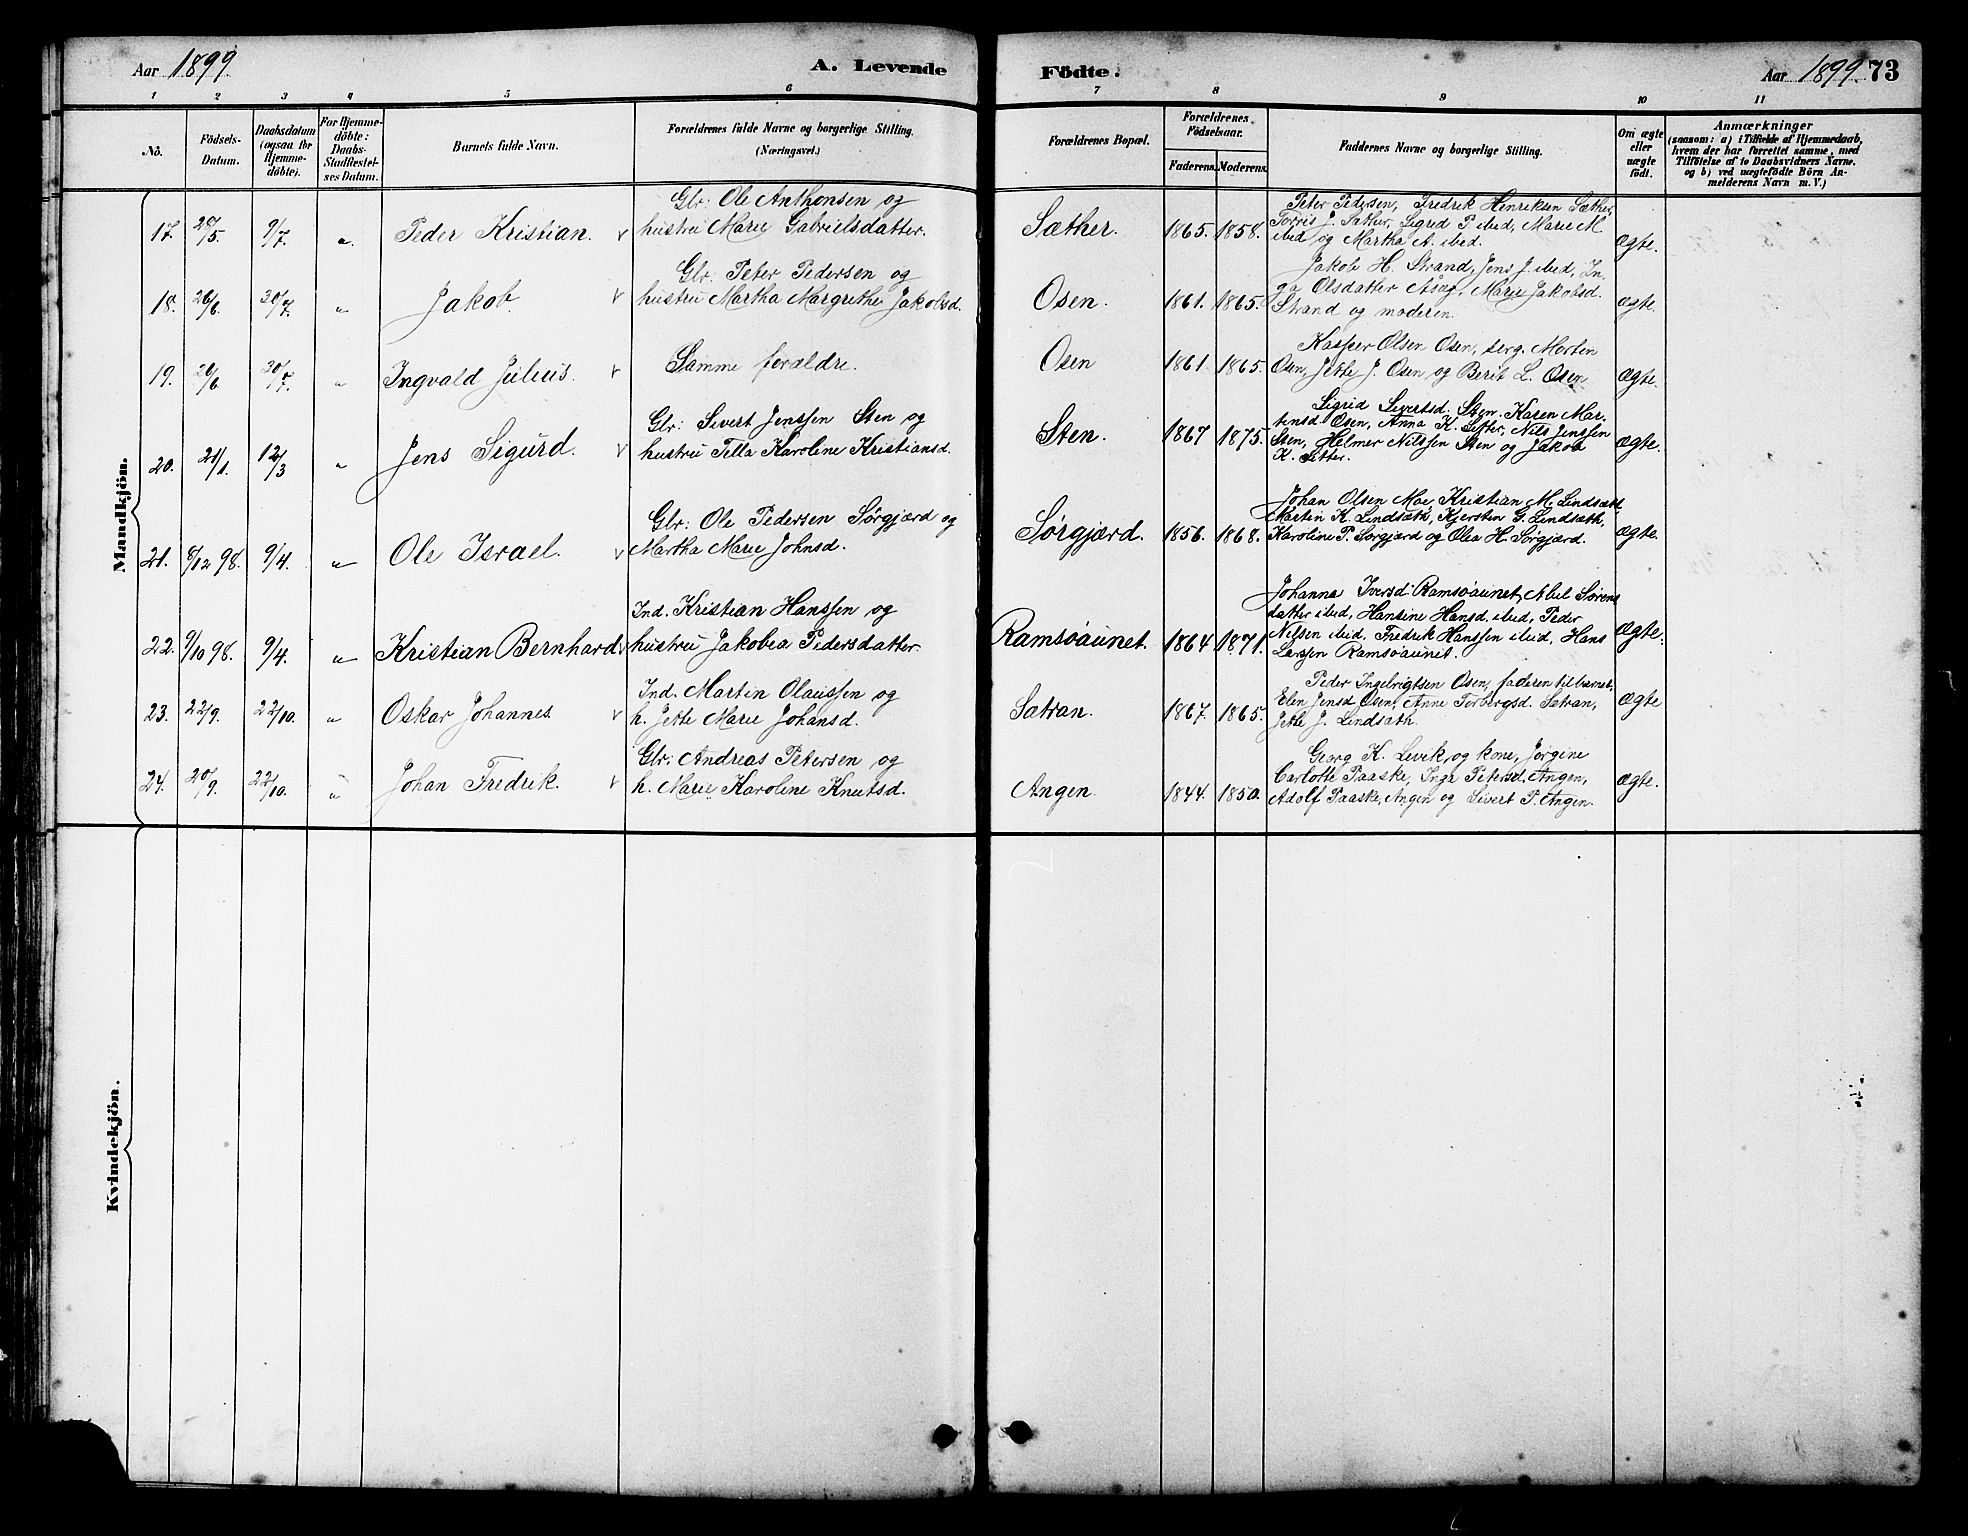 Aar 1899. A. Levende Födte. Aar 1899. 73
1 2 3 4 5 6 7 8 9 10 11
No.
Födsels-
Datum.
Daabsdatum
(ogsaa for
Hjemme-
döbte).
For Hjemme-
döbte:
Daabs-
Stadfæstel-
ses Datum.
Barnets fulde Navn.
Forældrenes fulde Navne og borgerlige Stilling.
(Næringsvei.)
Forældrenes Bopæl.
Forældrenes
Födselsaar.
Faderens. Moderens.
Faddernes Navne og borgerlige Stilling.
Om ægte
eller
uægte
født.
Anmærkninger
(saasom: a) i Tilfælde af Hjemmedaab,
hvem der har forrettet samme, med
Tilföielse af to Daabsvidners Navne.
og b) ved uægtefödte Börn An-
melderens Navn m. V.)
Mandkjön.
17. 9/7. " Peder Kristian. v
Glr: Ole Anthonsen og
hustru Marie Gabrielsdatter.
Sæther. 1865. 1858.
Peter Pedersen, Fredrik Henriksen Sæther,
Torris J. Sæther, Sigrid P. ibid, Marie M.
ibid og Martha A. ibid.
Ægte.
18. 20/6. 30/7. " Jakob. v
Glr: Peter Pedersen og
hustru Martha Margrethe Jakobsd.
Osen. 1861. 1865.
Jakob H. Strand, Jens J. ibid, In-
ga Olsdatter Marie Jakobsd.
Strand og moderen.
Ægte.
19. 20/6. 30/7. " Ingvald Julius. v
Samme forældre.
Osen 1861 1865.
Kasper Olsen Osen, Morten
Osen, Jette J. Osen og Berit L. Osen
Ægte.
20. 21/1. 12/3 " Jens Sigurd. v
Glr: Sivert Jenssen Sten og
hustru Tilla Karoline Kristiansd.
Sten. 1867 1875.
Sigrid Sivertsd. Sten. Karen Mar-
tinsd Osen, Anna K. Setter, Nils Jenssen
Sten, Helmer Nilssen Sten og Jakob
K. Setter.
Ægte.
21. 8/12 98. 9/4. " Ole Israel. v
Glr: Ole Pedersen Sørgjærd og
Martha Marie Johnsd.
Sørgjærd. 1856. 1868.
Johan Olsen Moe, Kristian M. Lindsæth,
Martin K. Lindsæth, Kjersten G. Lindsæth,
Karoline P. Sørgjærd og Olea H. Sørgjærd.
Ægte.
22. 9/10 98. 9/4. " Kristian Bernhard v
Ind. Kristian Hanssen og
hustru Jakobea Pedersdatter.
Ramsøaunet. 1864 1871.
Johanna Iversd Ramsøaunet, Abel Sørens
datter ibid, Hansine Hansd. ibid, Peder
Nilsen ibid. Fredrik Hanssen ibid, Hans
Larsen Ramsøaunet.
Ægte.
23. 22/9. 22/10. " Oskar Johannes. v
Ind. Martin Olaussen og
h. Jette Marie Johansd.
Sætran. 1867. 1865.
Peder Ingebrigtsen Osen, faderen til barnet,
Elen Jensd Osen, Anne Torbergsd. Sætran,
Jette J. Lindsæth.
Ægte
24. 20/9. 22/10. " Johan Fredrik. v
Glr: Andreas Petersen og
h. Marie Karoline Knutsd.
Angen. 1844. 1850.
Georg K. Levik, og kone, Jørgine
Carlotte Paaske, Inga Petersd. Angen,
Adolf Paaske, Angen og Sivert P. Angen.
Ægte.
Kvindekjön.